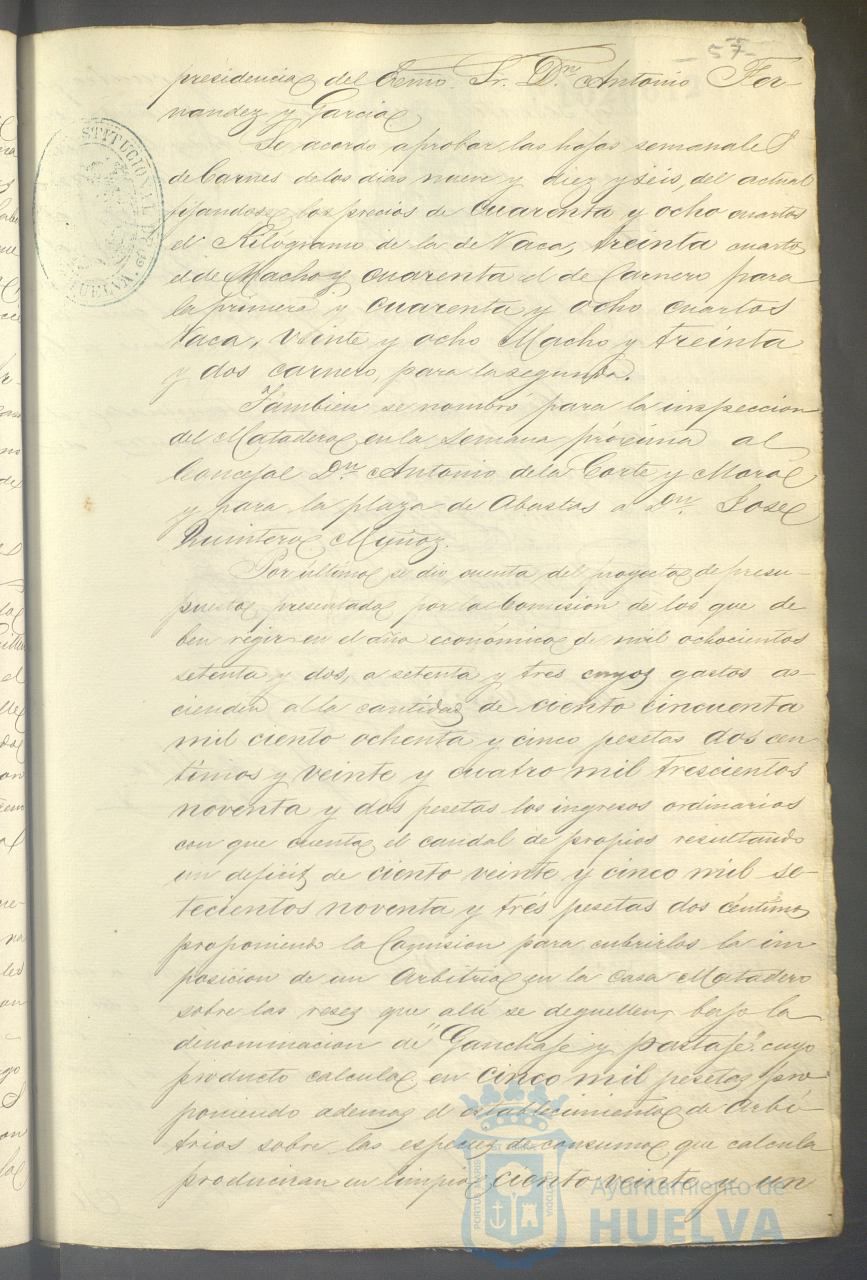 -57-
presidencia del Excmo. Sr. Dn. Antonio Fer-
nandez y Garcia
Se acordo aprobar las hojas semanales
de Carnes de los dias nueve y diez y seis, del actual
fijandose los precios de cuarenta y ocho cuartos
el Kilógramo de la de Vaca, treinta cuartos
el de Macho y cuarenta el de Carnero para
la primera y cuarenta y ocho cuartos
Vaca, veinte y ocho Macho y treinta
y dos carnero, para la segunda.
Tambien se nombró para la inspeccion
del Matadero en la semana próxima al
Concejal Dn. Antonio de la Corte y Mora
y para la plaza de Abastos a Dn. Jose
Quintero Muñoz.
Por ultimo se dio cuenta del proyecto de presu-
puesto presentado por la Comision de los que de
ben regir en el año económico de mil ochocientos
setenta y dos, a setenta y tres cuyos gastos as-
cienden a la cantidad de ciento cincuenta
mil ciento ochenta y cinco pesetas dos cen
timos y veinte y cuatro mil trescientos
noventa y dos pesetas los ingresos ordinarios
con que cuenta el caudal de propios resultando
un deficit de ciento veinte y cinco mil se-
tecientos noventa y trés pesetas dos céntimos
proponiendo la Comision para cubrirlos la im
posicion de un Arbitrio en la Casa Matadero
sobre las reses que allí se deguellen, bajo la
denominacion de "Ganchaje y pastaje" cuyo
producto calcula en cinco mil pesetas pro
poniendo ademas el establecimiento de Arbi-
trios sobre las especies de consumo que calcula
produciran en limpio ciento veinte y un
STITUCIONAL DE
HUELVA
PORTUS MARIS ET TERRAE CUSTODIA
Ayuntamiento de
HUELVA